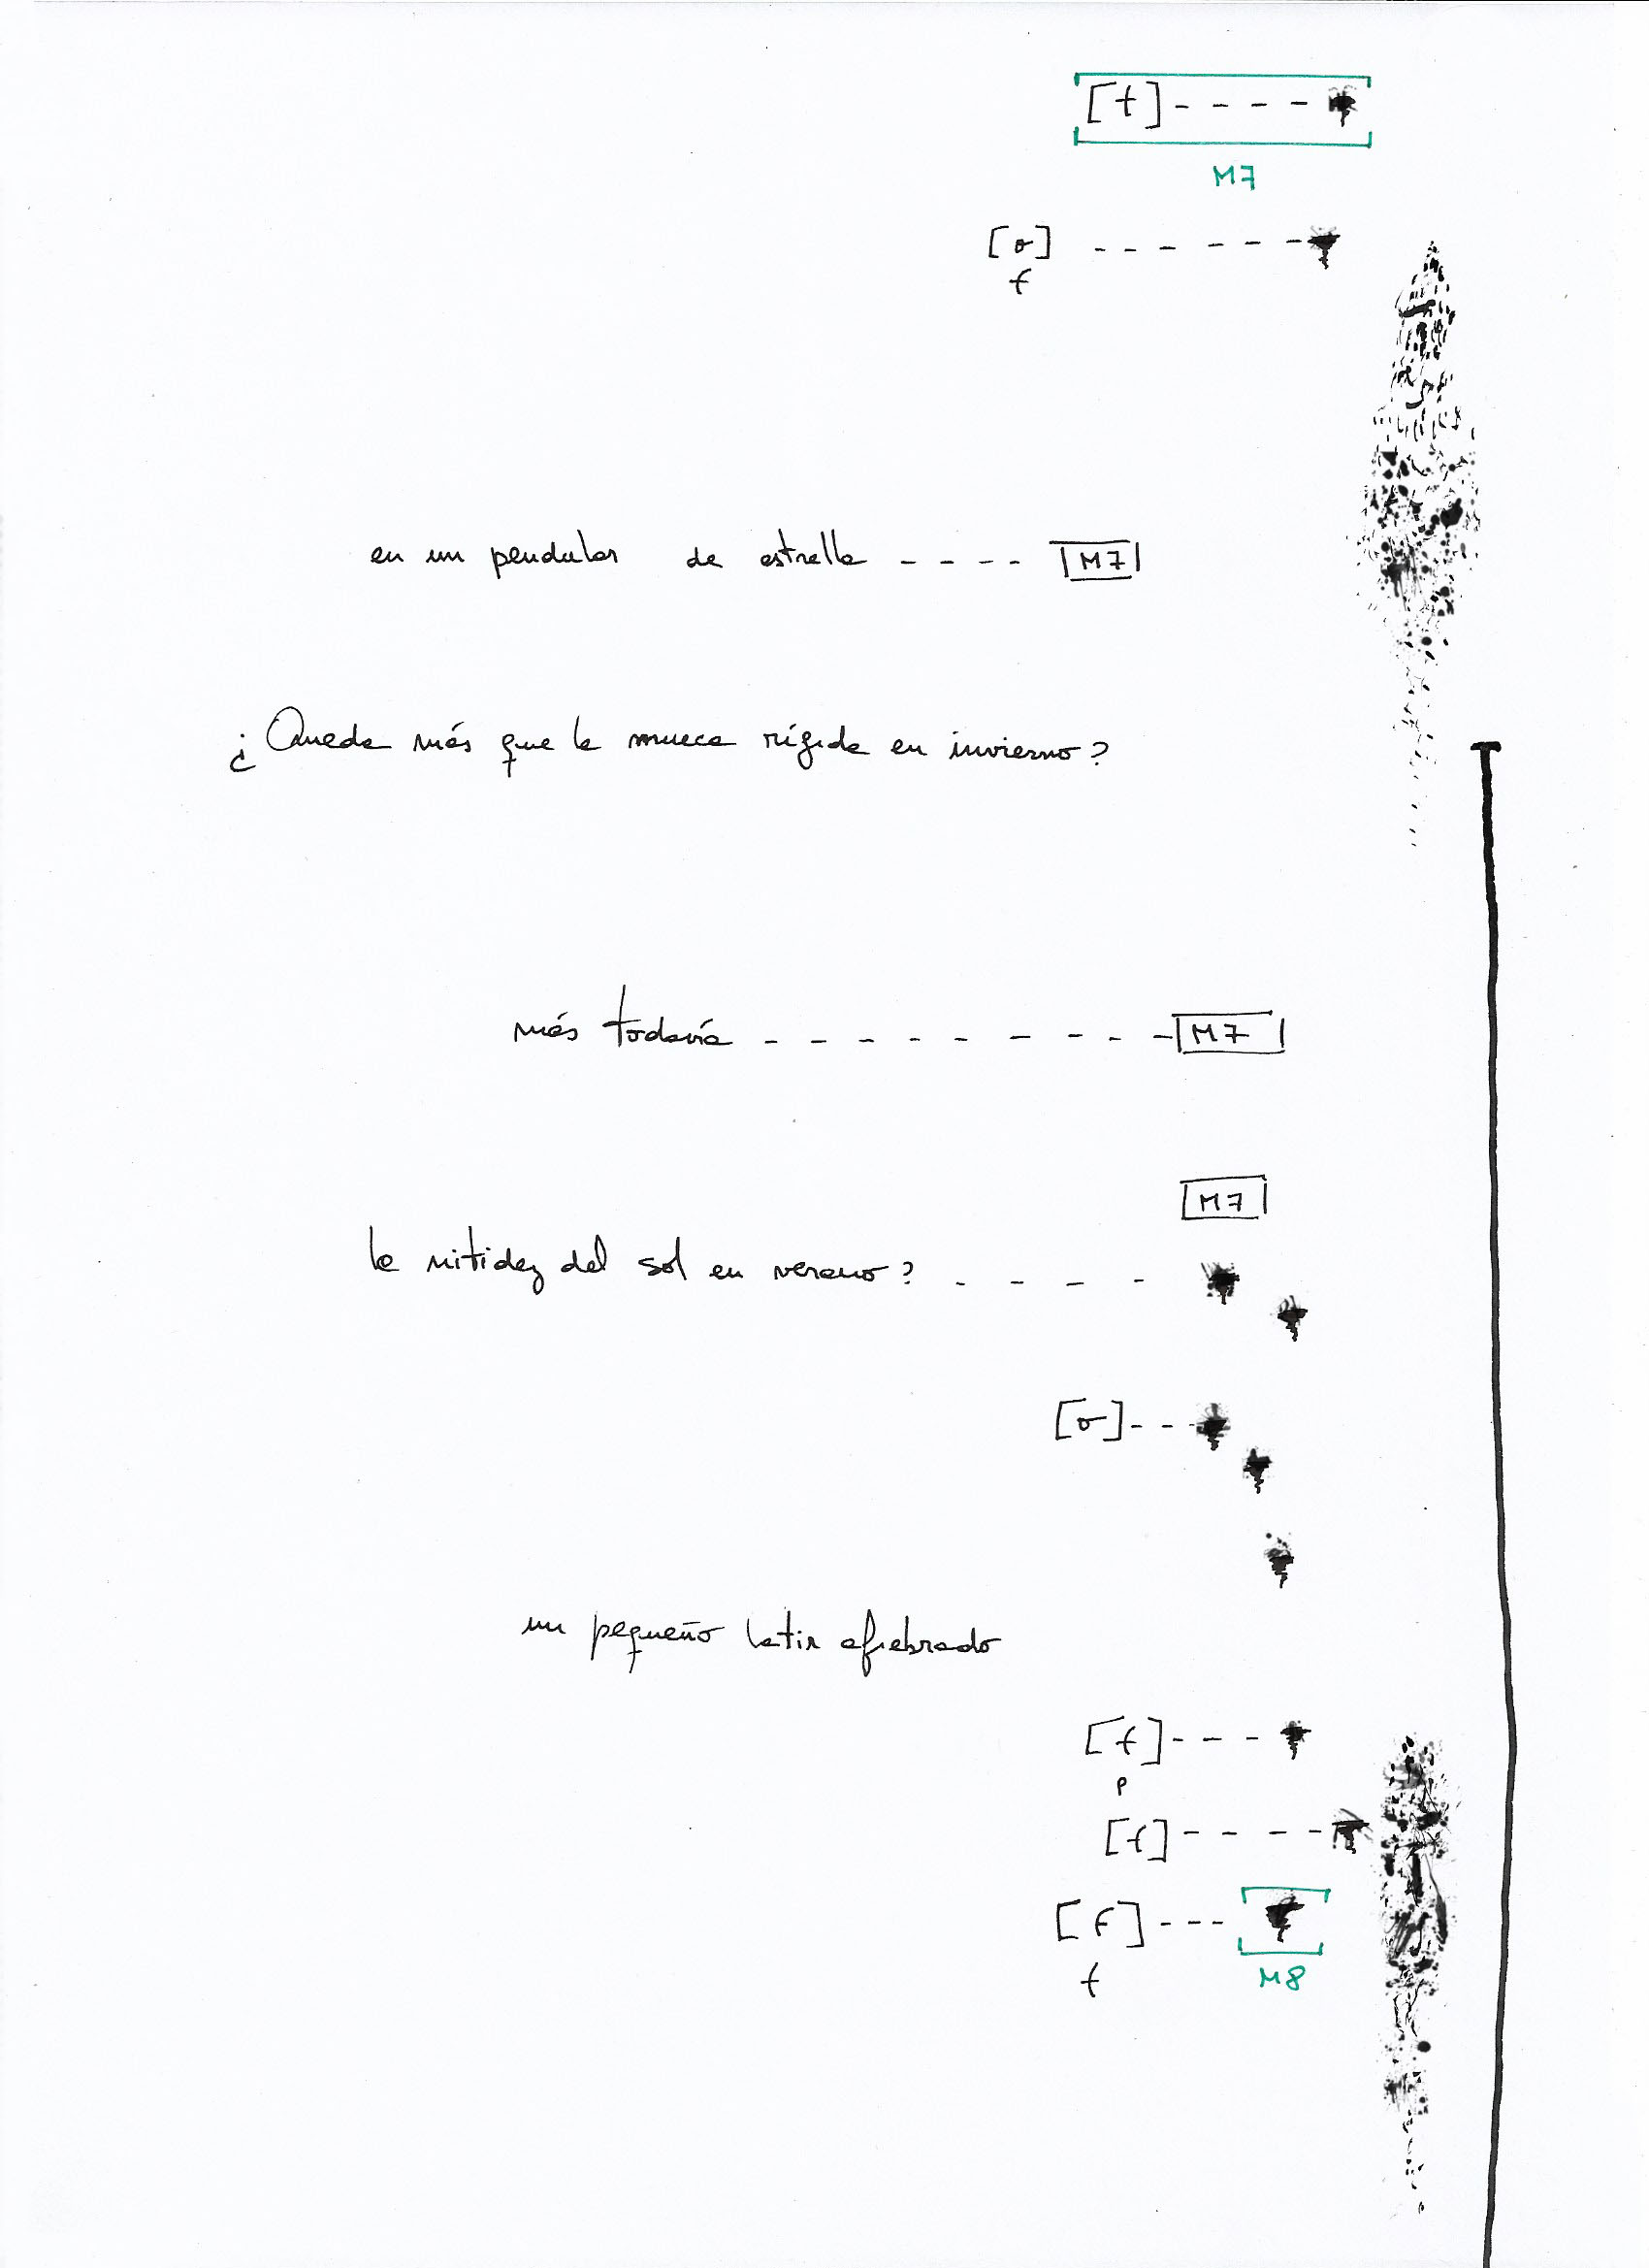 [t] - - - -
M7
[o] - - - - - -
f
en un pendular de estrella - - - - M7
¿Queda más que la mueca rígida en invierno?
más todavía - - - - - - - - - M7
M7
la nitidez del sol en verano? - - - -
[o] - - -
un pequeño latir afiebrado
[t] - - -
p
[t] - - - -
[F] - - -
f
M8